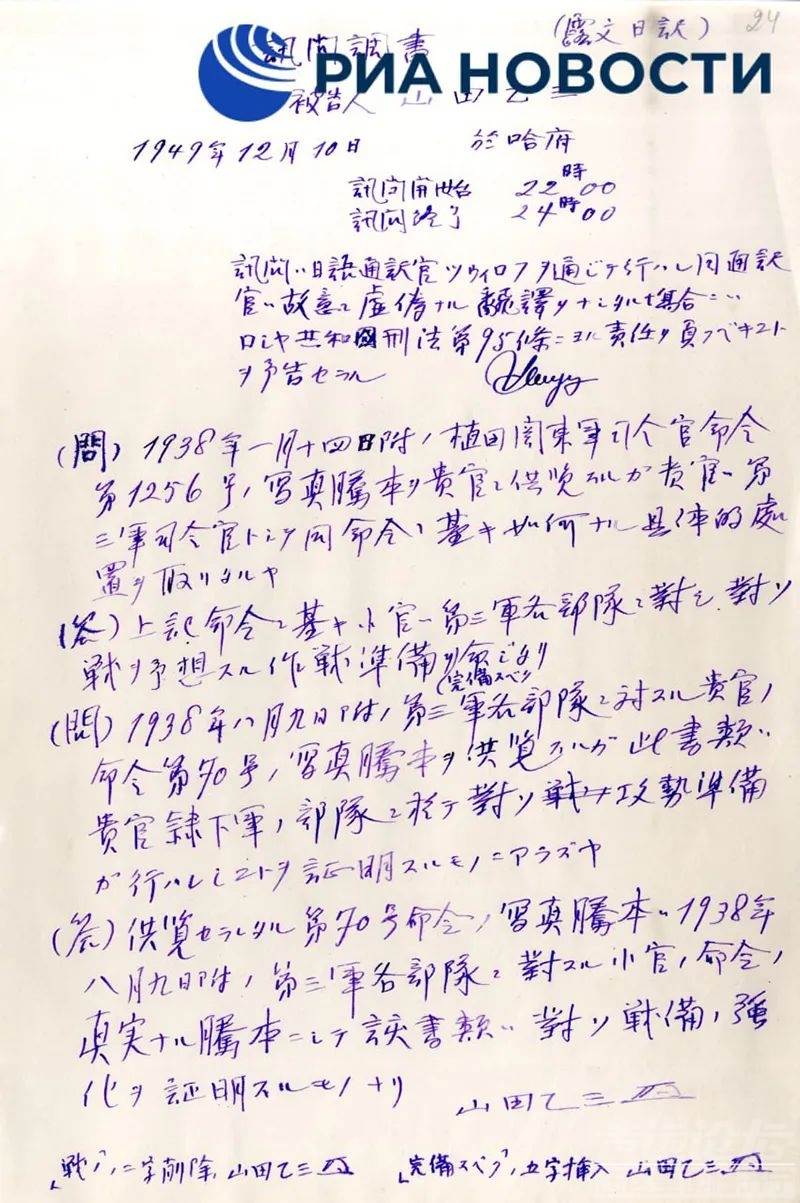 24
訊問調書
(露文日訳)
РИА НОВОСТИ
被告人 山田乙三
1949年12月10日 於哈府
訊問開始 22時00
訊問終了 24時00
訊問ハ日語通訳官ツウィロフヲ通ジテ行ハレ同通訳
官ハ故意ニ虚偽ナル飜譯ヲナシタル場合ニハ
ロシヤ共和国刑法第95條ニヨル責任ヲ負フベキコト
ヲ予告セラル
(問) 1938年一月十四日附ノ植田関東軍司令官命令
第1256号ノ写真謄本ヲ貴官ニ供覧スルガ貴官ハ第
三軍司令官トシテ同命令ニ基キ如何ナル具体的處
置ヲ取リタルヤ
(答) 上記命令ニ基キ小官ハ第三軍各部隊ニ對シ對ソ
戦ヲ予想スル作戦準備ヲ命ジタリ
(完備スベク)
(問) 1938年八月九日附ノ第三軍各部隊ニ対スル貴官ノ
命令第70号ノ写真謄本ヲ供覧スルガ此書類ハ
貴官隷下軍ノ部隊ニ於テ對ソ戦ノ攻勢準備
ガ行ハレシコトヲ証明スルモノニアラズヤ
(答) 供覧セラレタル第70号命令ノ写真謄本ハ1938年
八月九日附ノ第三軍各部隊ニ對スル小官ノ命令ノ
真実ナル謄本ニシテ該書類ハ對ソ戦備ノ強
化ヲ証明スルモノナリ
山田乙三
「戦ノ」ノ二字削除 山田乙三 「完備スベク」ノ五字挿入 山田乙三